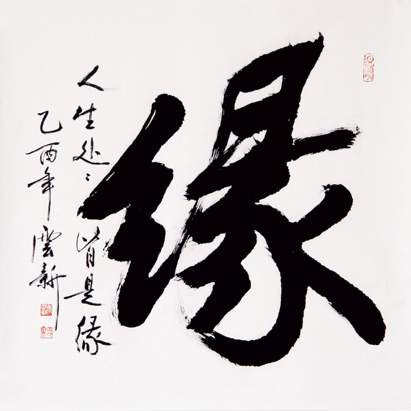 缘
人生处〻皆是缘
乙酉年 云新